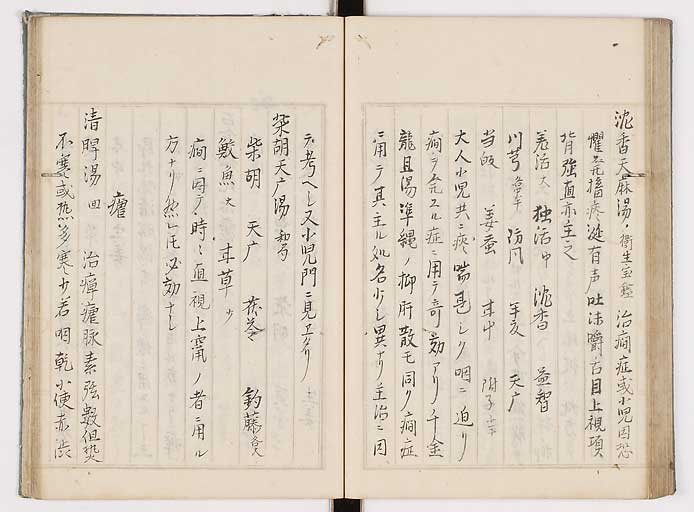 沈香天麻湯 衛生宝鑑 治癇症或小児因恐
懼発搐痰涎有声吐沫嚼舌目上視項
背強直亦主之
羌活大 独活中 沈香 益智
川芎 防风 半夏 天广
当皈 姜蚕 甘中 附子
大人小児共ニ痰喘甚シク咽ニ迫リ
癇ヲ発スル症ニ用テ奇効アリ千金
龍且湯準縄ノ抑肝散モ同ク癇症
ニ用テ其主ル処各少シ異ナリ主治ニ因
テ考ヘシ又小児門ニ見エタリ
柴胡天广湯
柴胡 天广 茯苓 釣藤
鮫魚大 甘草少
癇ニ因テ時々直視上竄ノ者ニ用ル
方ナリ然レ𪜈必効ナシ
瘧
清脾湯 回 治瘴瘧脉素強数但熱
不寒或熱多寒少若咽乾小便赤渋